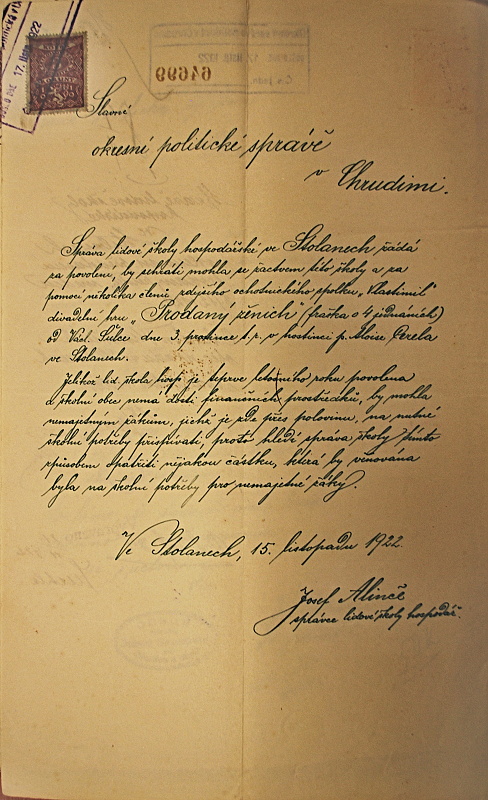 17. list 1922
64699
Slavné
okresní politické správě
v Chrudimi.
Správa lidové školy hospodářské ve Stolanech žádá
za povolení, by sehráti mohla se žactvem této školy a za
pomoci několika členů zdejšího ochotnického spolku „Vlastimil"
divadelní hru „Prodaný ženich" (fraška o 4 jednáních)
od Václ. Lulce dne 3. prosince t.r. v hostinci p. Aloise Cerela
ve Stolanech.
Jelikož lid. škola hosp. je teprve letošního roku povolena
a školní obec nemá dosti finančních prostředků, by mohla
nemajetným žákům, jichž je zde přes polovinu, na nutné
školní potřeby přispívati, proto hledí správa školy tímto
způsobem opatřiti nějakou částku, která by věnována
byla na školní potřeby pro nemajetné žáky.
Ve Stolanech, 15. listopadu 1922.
Josef Alinče
správce lidové školy hospodář.